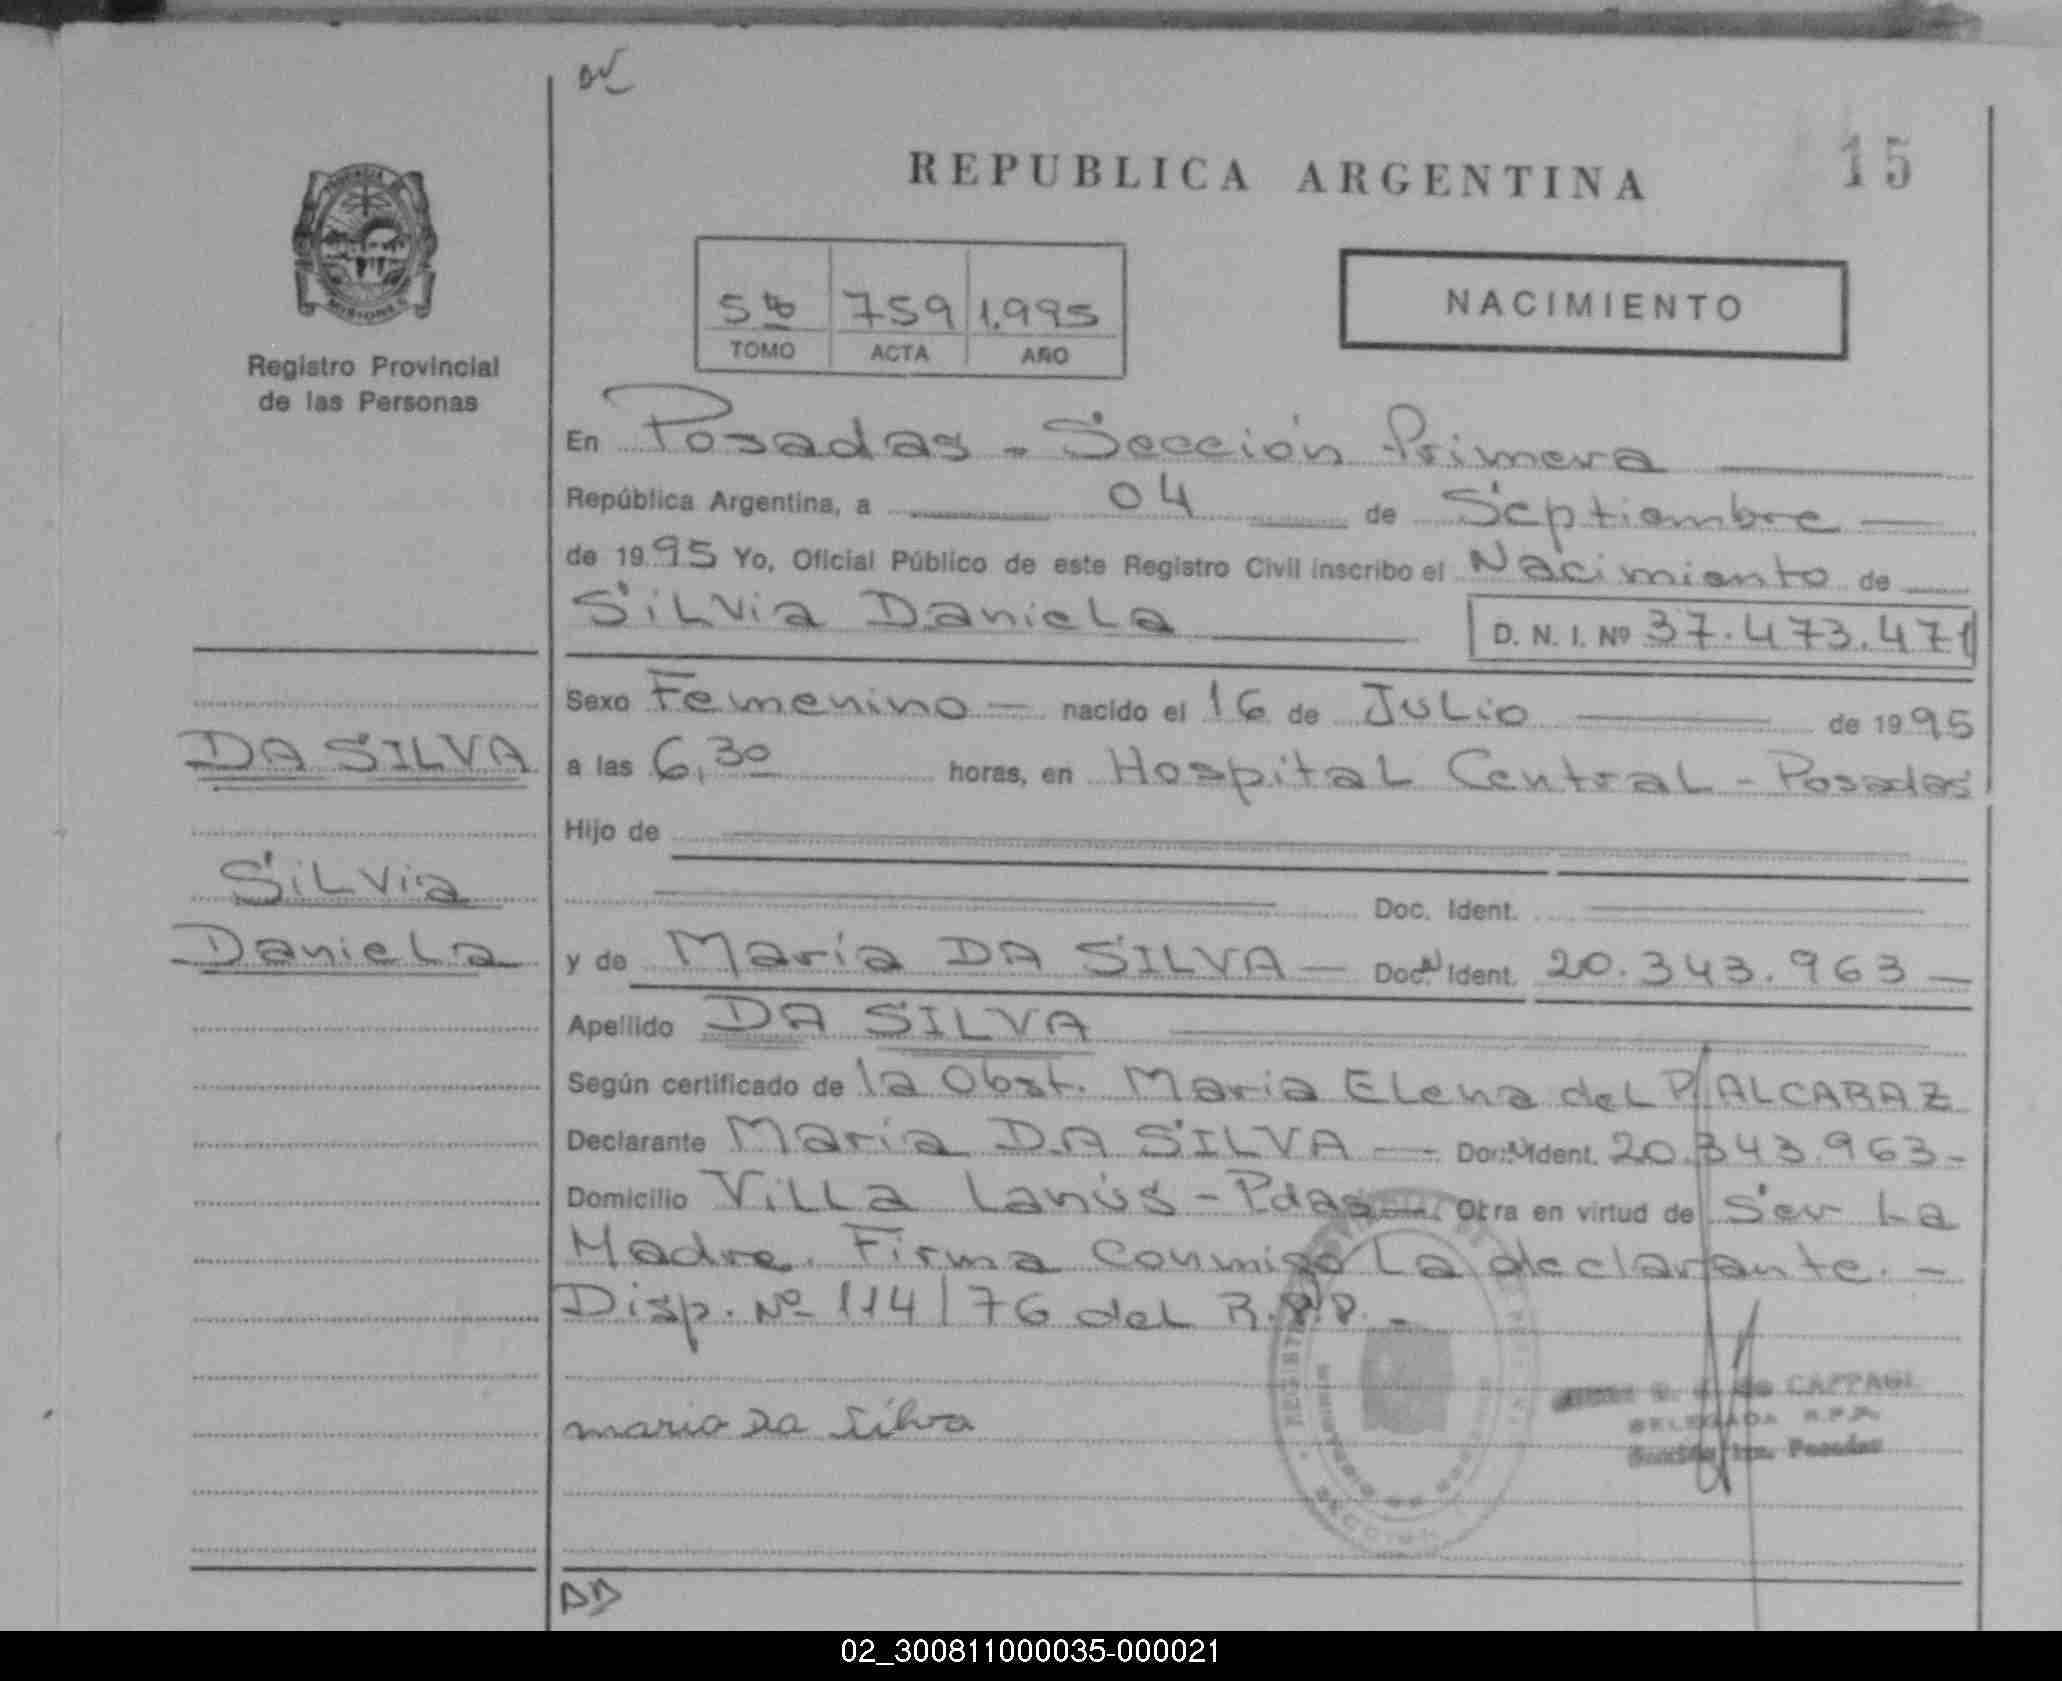 15
REPUBLICA ARGENTINA
PROVINCIA DE
MISIONES
Registro Provincial
de las Personas
5to 759 1.995
TOMO ACTA AÑO
NACIMIENTO
En Posadas - Sección Primera
República Argentina, a 04 de Septiembre
de 1995 Yo, Oficial Público de este Registro Civil inscribo el Nacimiento de
Silvia Daniela D. N. I. Nº 37.473.471
Sexo Femenino - nacido el 16 de Julio de 1995
a las 6,30 horas, en Hospital Central - Posadas
Hijo de
Doc. Ident.
y de María DA SILVA - Doc. N Ident. 20.343.963 -
Apellido DA SILVA
Según certificado de la Obst. Maria Elena del P. ALCARAZ
Declarante Maria DA SILVA - Doc. N Ident. 20.343.963 -
Domicilio Villa Lanús - Pdas. Obra en virtud de Ser La
Madre. Firma Conmigo La declarante. -
Disp. Nº 114/76 del R.P.P. -
maria Da Silva
CAPPAGLI
DELEGADA R.P.P.
Sección 1ra. Posadas
DA SILVA
Silvia
Daniela
02_300811000035-000021